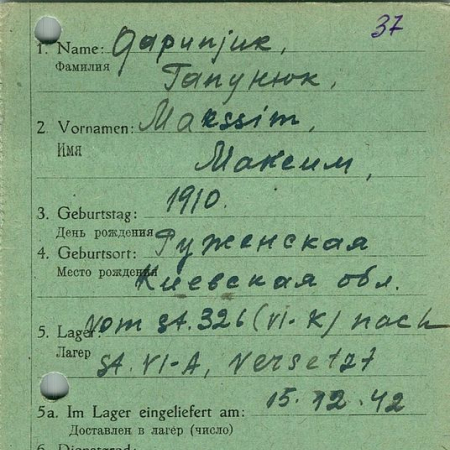 37
1. Name: Gapunjuk,
Фамилия Гапунюк,
2. Vornamen: Makssim,
Имя Максим,
3. Geburtstag: 1910.
День рождения
4. Geburtsort: Руженская
Место рождения Киевская обл.
5. Lager: vom St. 326 (VI-K) nach
Лагер St. VI-A, versetzt
5a. Im Lager eingeliefert am: 15.12.42
Доставлен в лагер (число)
6. Dienstgrad: